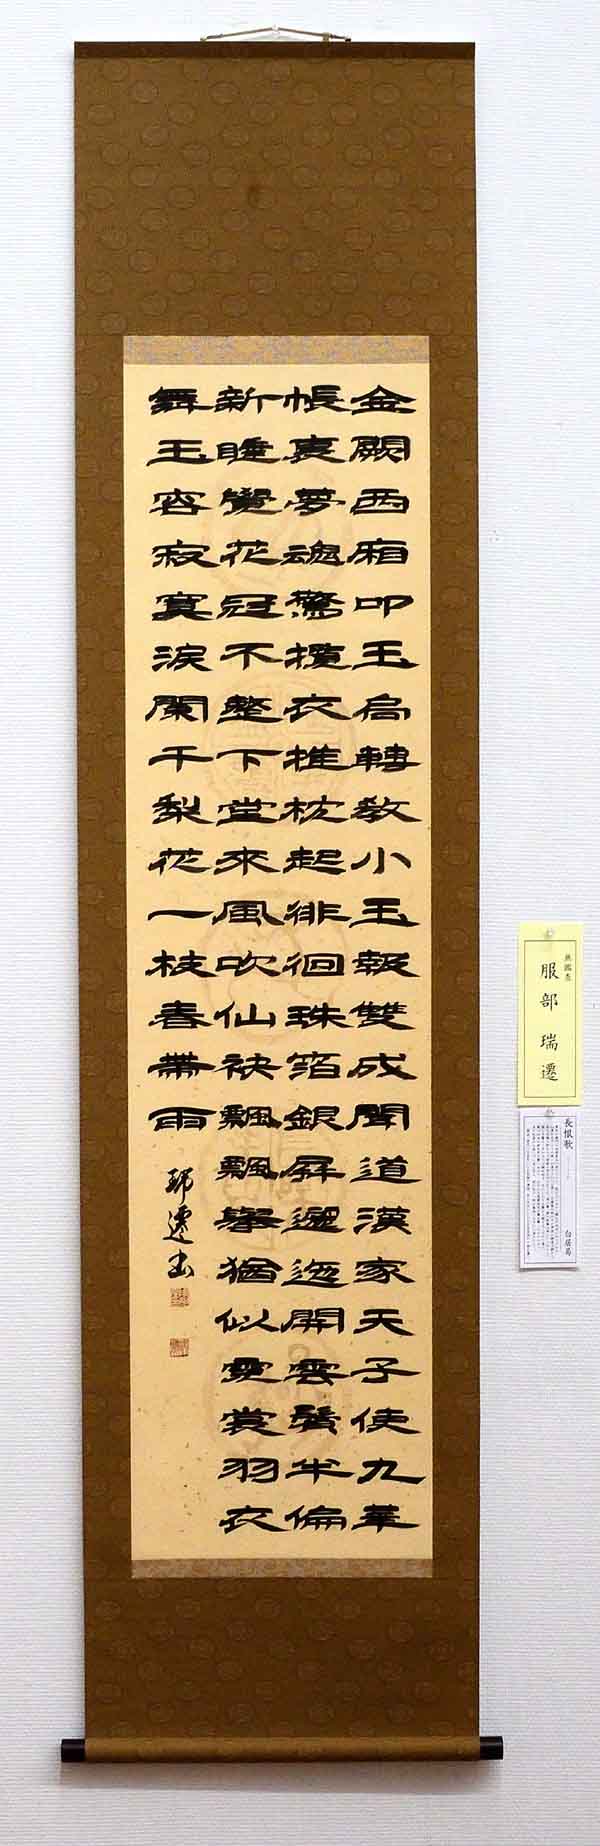 金闕西廂叩玉扃轉教小玉報雙成聞道漢家天子使九華
帳裏夢魂驚攬衣推枕起徘徊珠箔銀屏邐迤開雲鬢半偏
新睡覺花冠不整下堂來風吹仙袂飄飄舉猶似霓裳羽衣
舞玉容寂寞淚闌干梨花一枝春帶雨
瑞遷書
無鑑査
服部 瑞遷
長恨歌
白居易